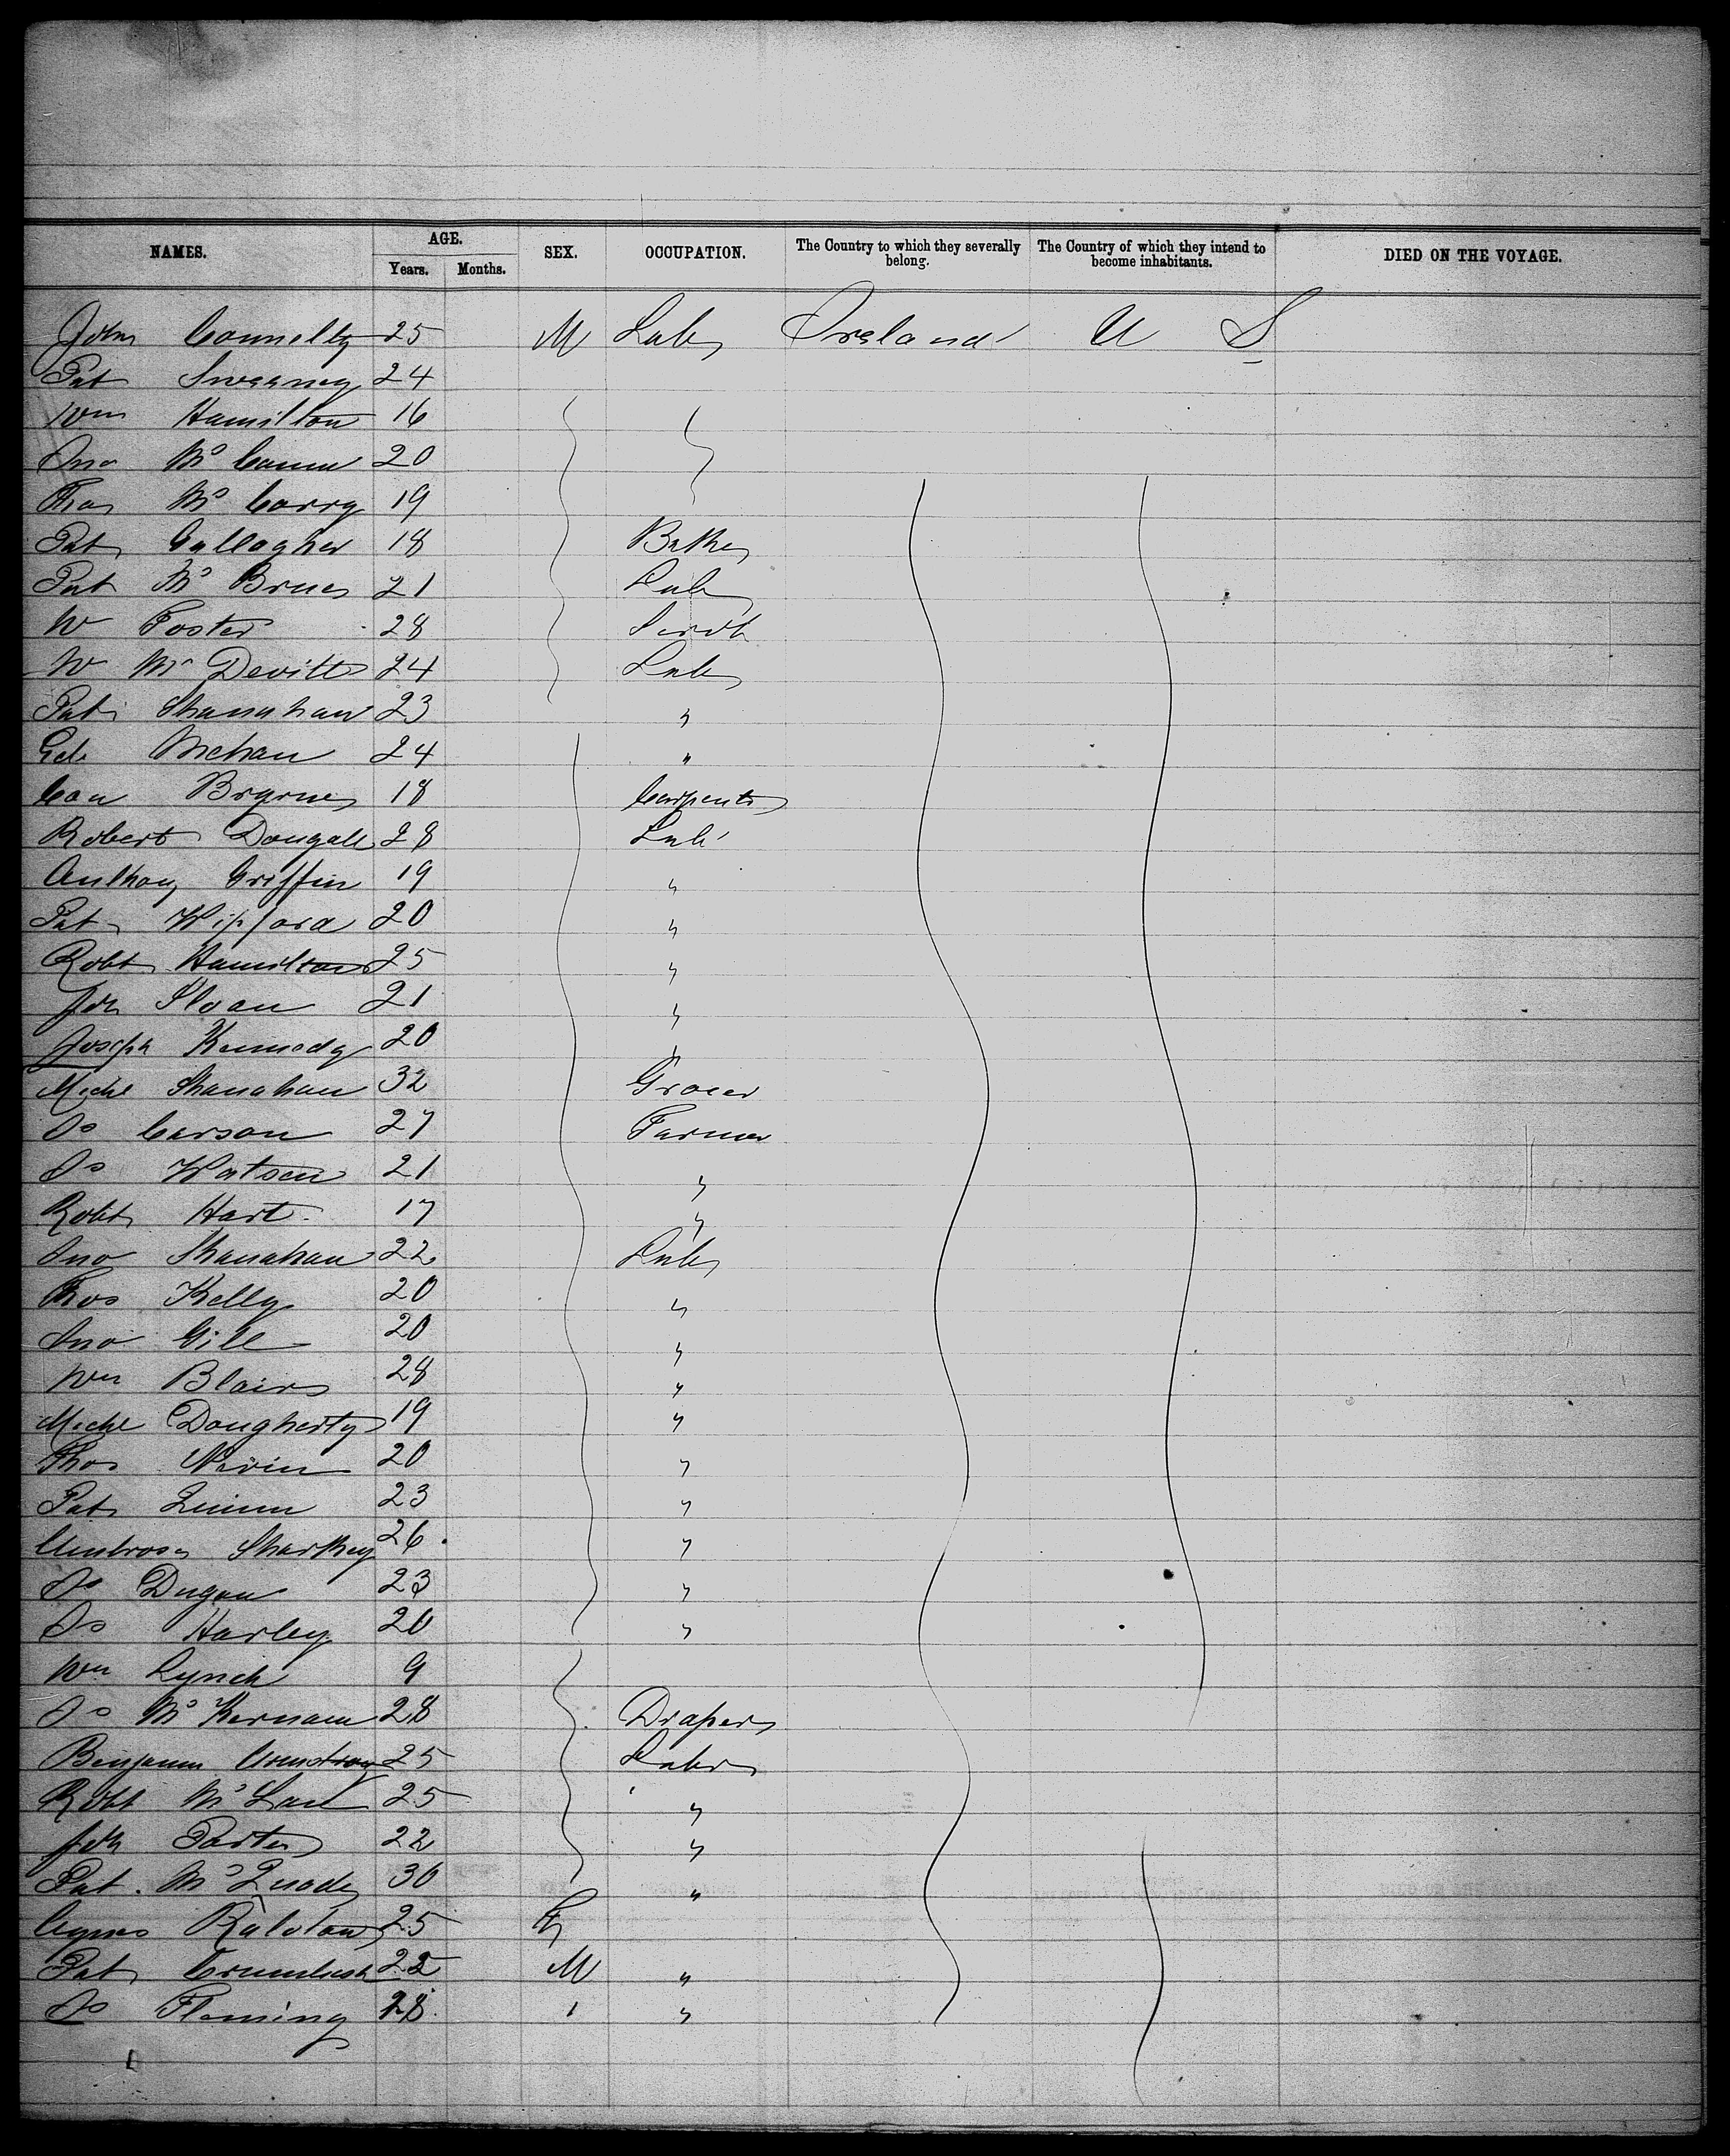 NAMES. AGE. SEX. OCCUPATION. The Country to which they severally belong. The Country of which they intend to become inhabitants. DIED ON THE VOYAGE.
Years. Months.
John Connelly 25 M Lab Ireland U S
Pat Sweeney 24
Wm Hamilton 16
Jno McCann 20
Thos 19
Pat Gallagher 18 Baker
Pat 21 Lab
W Foster 28
W McDevitt 24 Lab
Pat Shanahan 23 "
Mehan 24 "
Con Bryrnes 18 Carpenter
Robert Dougall 28 Lab
Anthony Griffin 19 "
Pat 20 "
Robt Hamilton 25 "
Jos Sloan 21 "
Joseph Kennedy 20 "
Michl Shanahan 32 Grocer
Js Carson 27 Farmer
Js Watson 21 "
Robt Hart 17 "
Jno Shanahan 22 Lab
Thos Kelly 20 "
Jno Gill 20 "
Wm Blair 28 "
Michl Dougherty 19 "
Thos Nevin 20 "
Pat Quinn 23 "
Ambrose Sharkey 26 "
Js Dugan 23 "
Js Harley 20 "
Wm Lynch 9
Js McKernam 28 Draper
Benjamin Armstrong 25 Labr
Robt 25 "
Porter 22 "
Pat McQuade 30 "
Agnes Ralston 25 F
Pat 22 M "
Js Fleming 28 " "